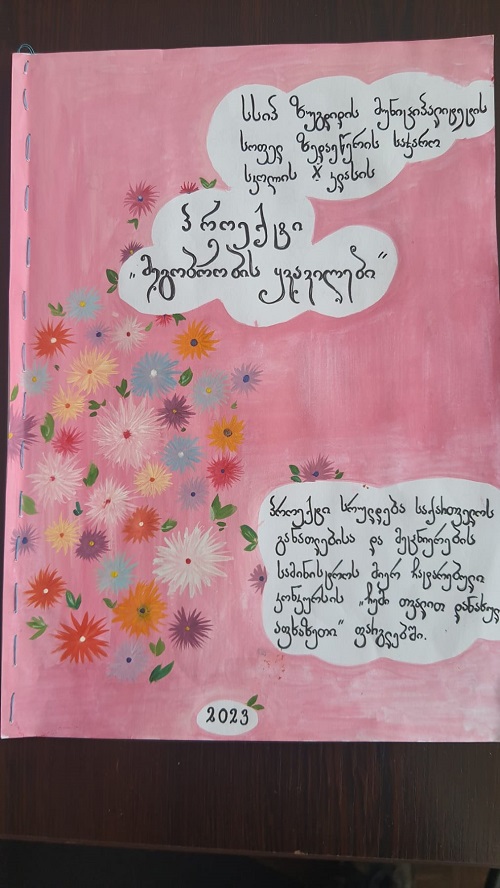 სსიპ ზუგდიდის მუნიციპალიტეტის
სოფელ ზედაეწერის საჯარო
სკოლის X კლასის
პროექტი
„მეგობრობის ყვავილები“
პროექტი სრულდება საქართველოს
განათლებისა და მეცნიერების
სამინისტროს მიერ ჩატარებული
კონკურსის „ჩემი თვალით დანახული
აფხაზეთი“ ფარგლებში.
2023